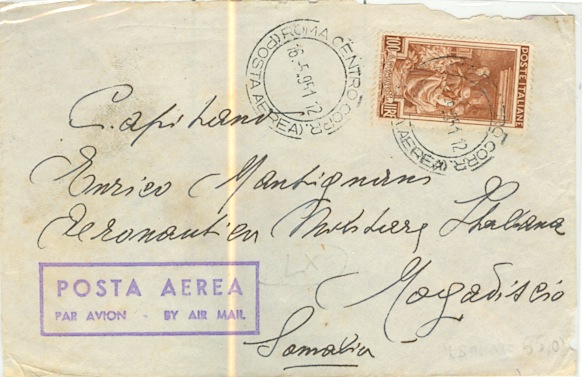 ROMA CENTRO CORR.
(POSTA AEREA)
16.5.951.12
POSTE ITALIANE
100
LIRE
Capitano
Enrico
Aeronautica Militare Italiana
Mogadiscio
Somalia
POSTA AEREA
PAR AVION - BY AIR MAIL